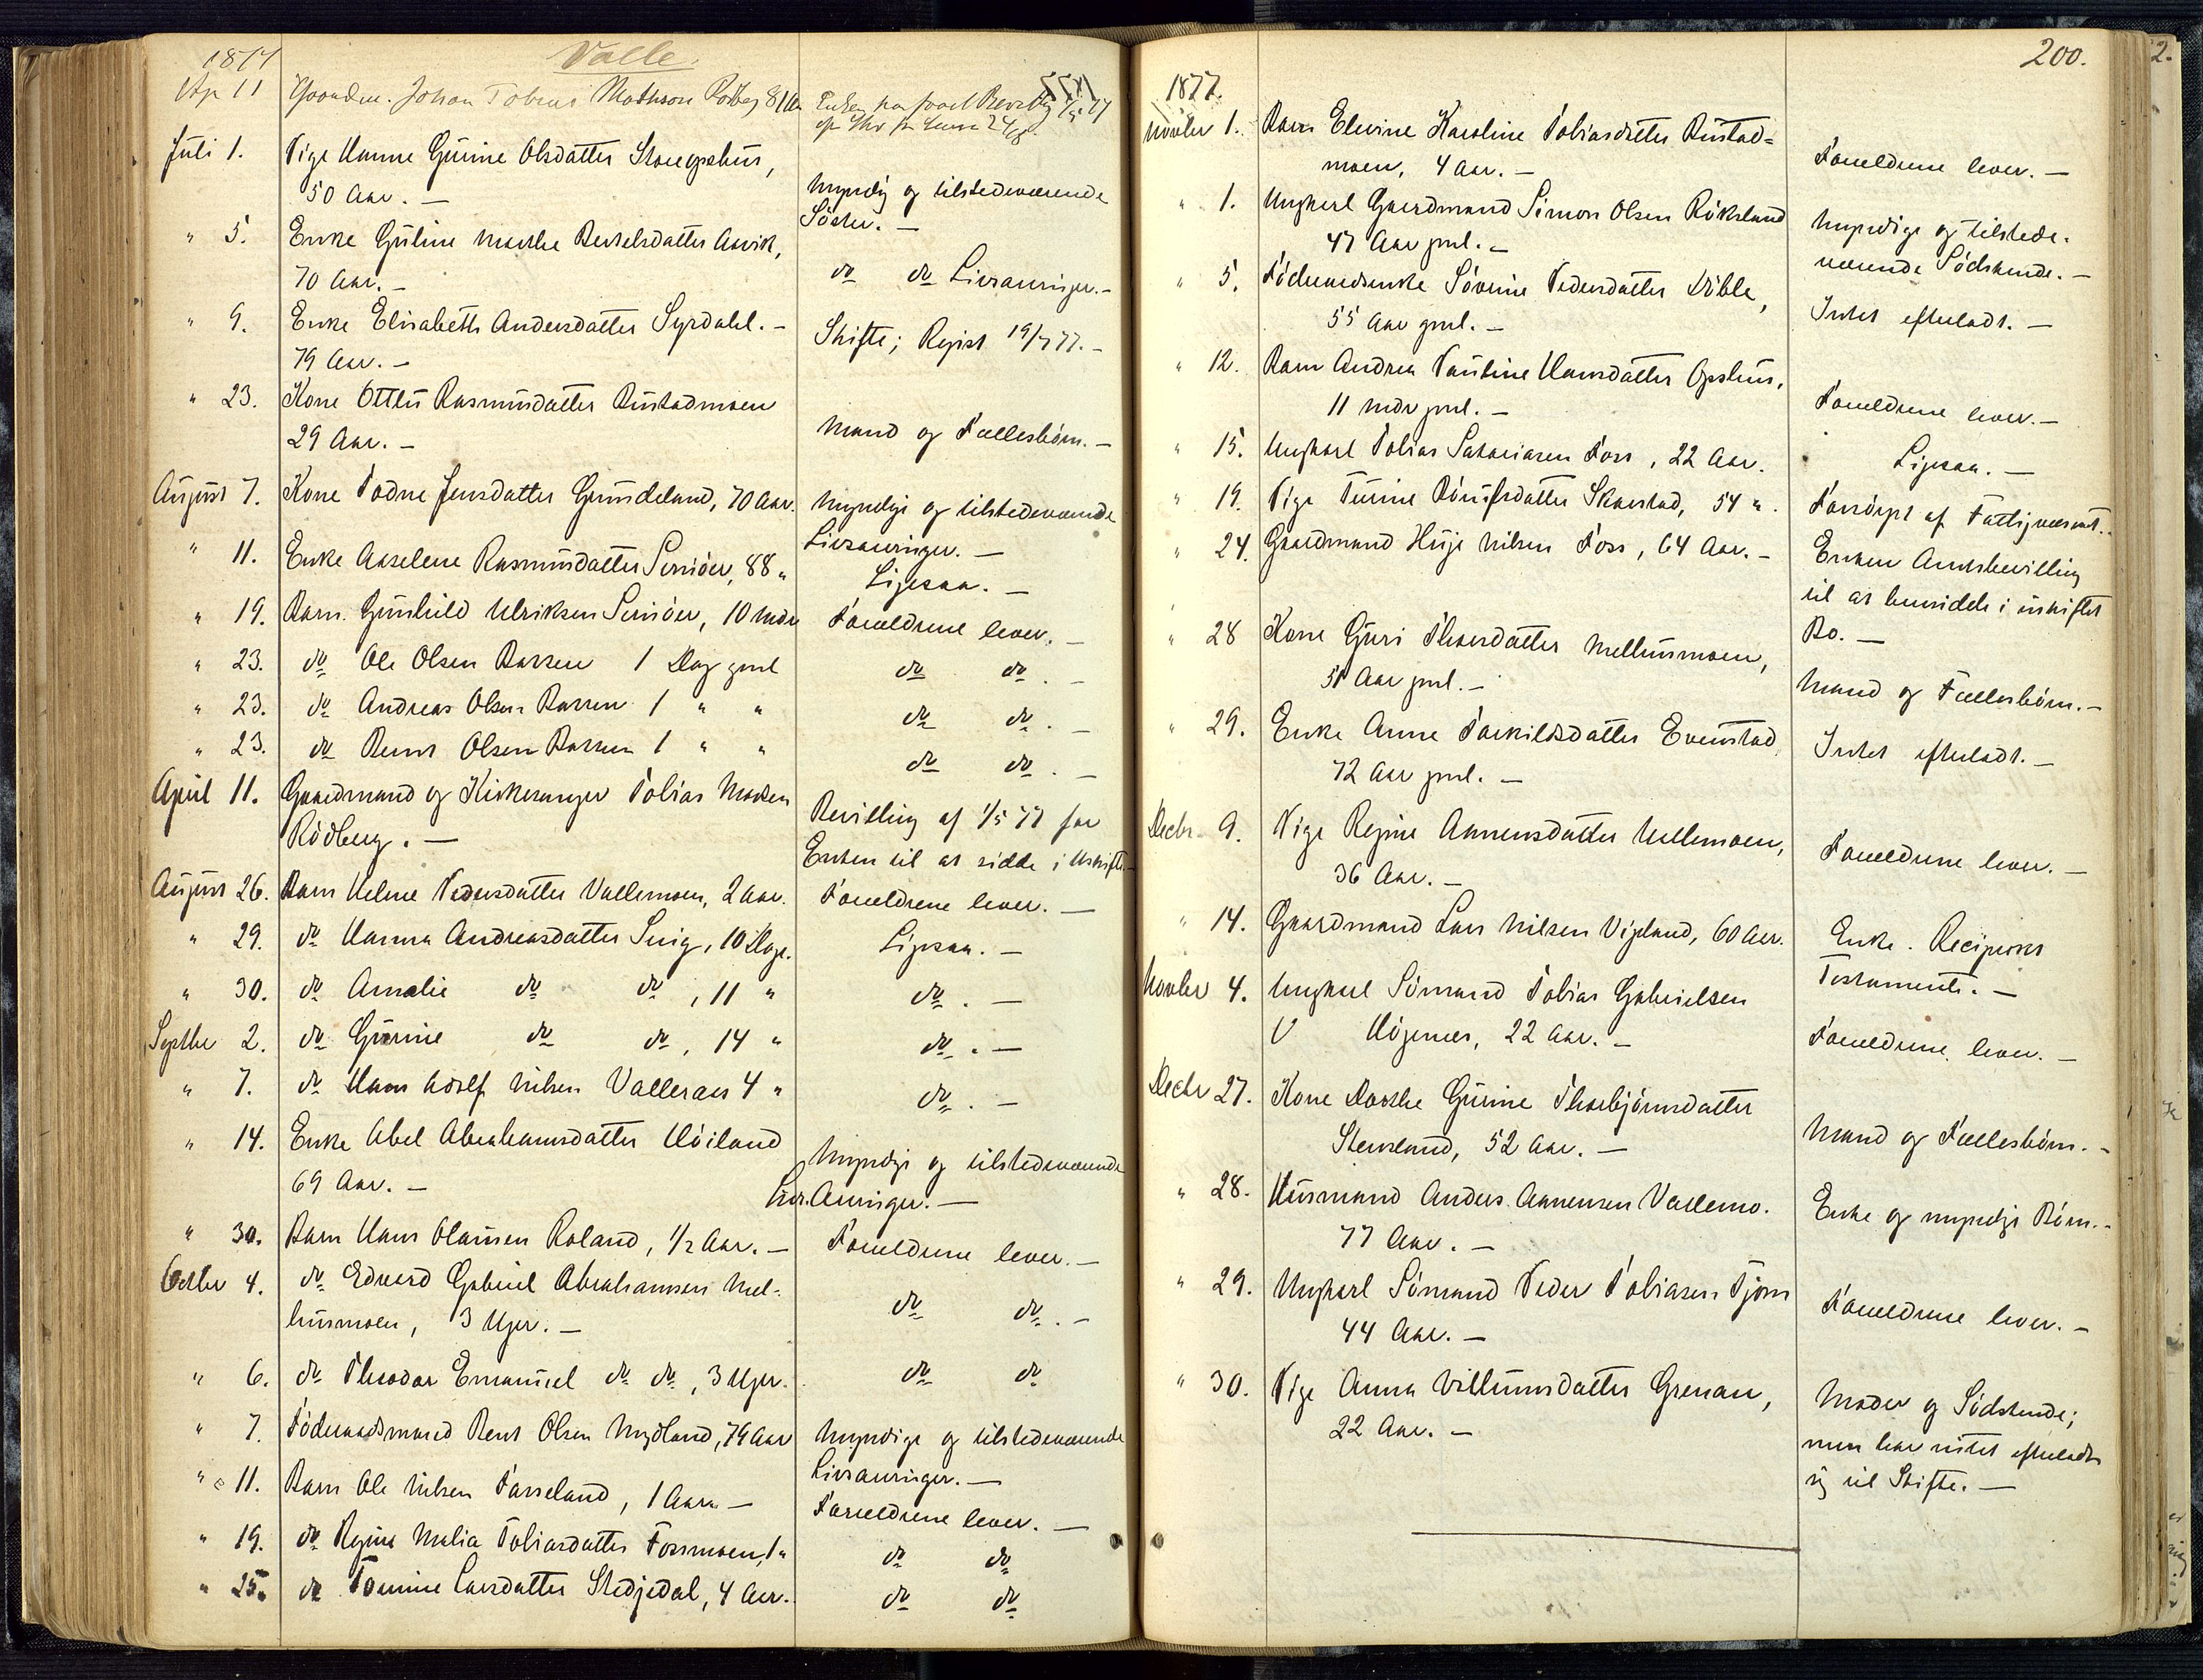 1877 Valle.
Ap 11 Johan Tobias Mathson Rødberg 81 Aar
Juli 1. Pige Hanne Gurine Olsdatter Stougshus, Myndig og tilstedeværende
50 Aar. — Søster. —
" 5. Enke Guline Marthe Bertelsdatter Aavik, do do Livsarvinger. —
70 Aar. —
" 9. Enke Elisabeth Andersdatter Syrdahl. — Skifte; Regist 19/7 77. —
79 Aar. —
" 23. Kone Ottlu Rasmusdatter Rustadmoen Mand og Fællesbørn. —
29 Aar. —
August 7. Kone Todne Jensdatter Gunsdeland, 70 Aar. Myndige og tilstedeværende
Livsarvinger. —
" 11. Enke Aaselene Rasmusdatter Svinøer, 88 " Ligesaa. —
" 19. Barn Gunhild Ulriksen Svinøer, 10 Mdr Forældrene lever. —
" 23. do Ole Olsen Barren 1 Dag gml do do. —
" 23. do Andreas Olsen Barren 1 " " do do. —
" 23. do Bernt Olsen Barren 1 " " do do. —
April 11. Gaardmand og Kirkesanger Tobias Madsen Bevilling af 1/5 77 for
Rødberg. — Enken til at sidde i Uskifte. —
August 26. Barn Helene Pedersdatter Vallemoen, 2 Aar. Forældrene lever. —
" 29. do Hanna Andreasdatter Snig, 10 Dage. Ligesaa. —
" 30. do Amalie do do, 11 " do. —
Septbr 2. do Gurine do do, 14 " do. —
" 7. do Hans Adolf Nilsen Valleraas 4 " do. —
" 14. Enke Abel Abrahamsdatter Høiland Myndige og tilstedeværende
69 Aar. — Livs.Arvinger. —
" 30. Barn Hans Olausen Roland, 1/2 Aar. — Forældrene lever. —
Octbr 4. do Edvard Gabriel Abrahamsen Mel= do do. —
husmoen, 3 Uger. —
" 6. do Theodor Emanuel do do, 3 Uger. do do
" 7. Føderaadsmand Bent Olsen Mydland, 79 Aar Myndige og tilstedeværende
Livsarvinger. —
" 11. Barn Ole Nilsen Fasseland, 1 Aar. — Forældrene lever. —
" 19. do Regine Malia Tobiasdatter Fossmoen, 1 " do do
" 25. do Tomine Larsdatter Stedjedal, 4 Aar. do do
200.
1877.
Novbr 1. Barn Elevine Karoline Tobiasdatter Rustad= Forældrene lever. —
moen, 4 Aar. —
" 1. Ungkarl Gaardmand Simon Olsen Røksland Myndige og tilstede-
47 Aar gml. — værende Södskende. —
" 5. Føderaadsenke Sørine Pedersdatter Døble, Intet efterladt. —
55 Aar gml. —
" 12. Barn Andrea Pauline Hansdatter Opshus, Forældrene lever. —
11 Mdr gml. —
" 15. Ungkarl Tobias Sakariasen Foss, 22 Aar. Ligesaa. —
" 19. Pige Turine Skarstad, 54 ". Forsørget af Fattigvæsnt.
" 24. Gaardmand Huje Nilsen Foss, 64 Aar. — Enken Amtsbevilling
til at hensidde i uskiftet
Bo. —
" 28 Kone Guri Thorsdatter Mellusmoen, Mand og Fællesbørn. —
51 Aar gml. —
" 29. Enke Anne Torkildsdatter Evenstad Intet efterladt. —
72 Aar gml. —
Decbr 9. Pige Regine Aanensdatter Vallemoen, Forældrene lever. —
36 Aar. —
" 14. Gaardmand Lars Nilsen Vigeland, 60 Aar. Enke. Reciprokt
Testamente. —
Novbr 4. Ungkarl Sömand Tobias Gabrielsen Forældrene lever. —
Høgenes, 22 Aar. —
Decbr 27. Kone Dorthe Gurine Thorbjørnsdatter Mand og Fællesbørn. —
Stensland, 52 Aar. —
" 28. Husmand Anders Aanensen Vallemo. Enke og myndige Børn. —
77 Aar. —
" 29. Ungkarl Sömand Peder Tobiasen Tjom Forældrene lever. —
44 Aar. —
" 30. Pige Anna Villumsdatter Grenan, Moder og Södskende;
22 Aar. — men har intet efterladt
sig til Skifte. —